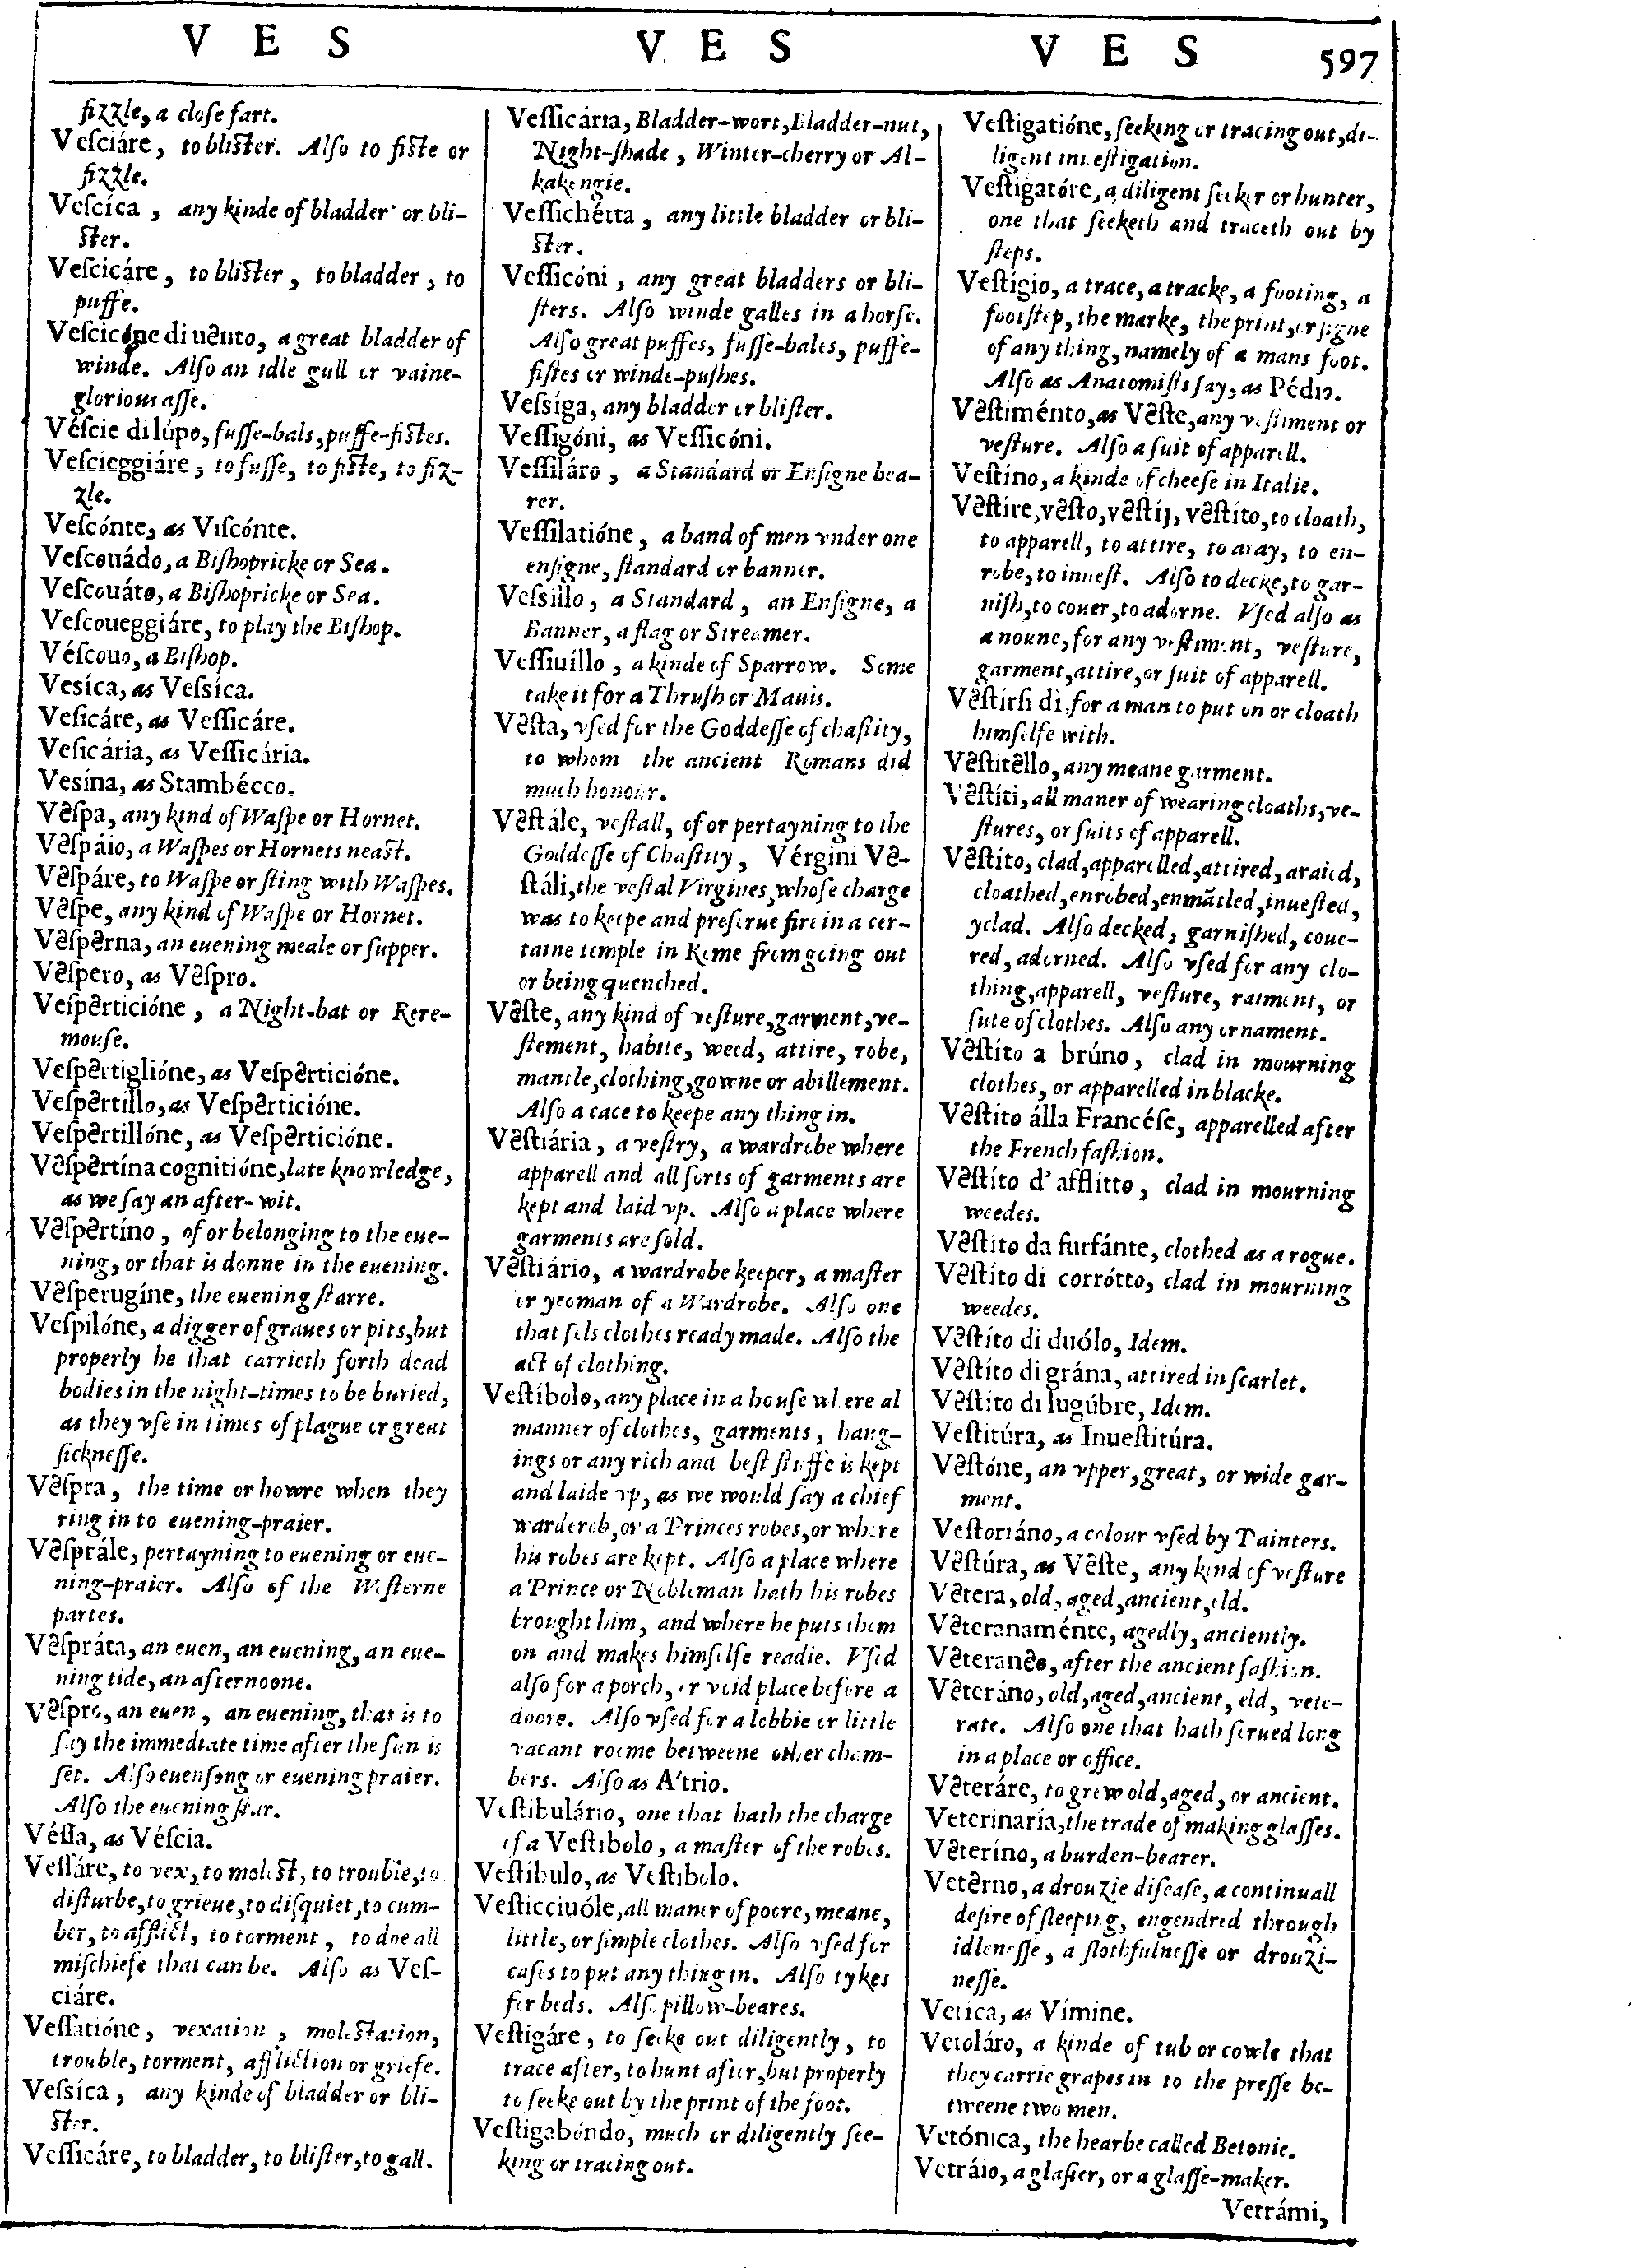 V E S V E S V E S 597
fizzle, a close fart.
Vesciáre, to blister. Also to fiste or
fizzle.
Vescíca, any kinde of bladder or bli-
ster.
Vescicáre, to blister, to bladder, to
puffe.
Vescicóne di uẽnto, a great bladder of
winde. Also an idle gull or vaine-
glorious asse.
Véscie di lúpo, fusse-bals, puffe-fistes.
Vescieggiáre, to fusse, to fiste, to fiz-
zle.
Vescónte, as Viscónte.
Vescouádo, a Bishopricke or Sea.
Vescouáto, a Bishopricke or Sea.
Vescoueggiáre, to play the Bishop.
Véscouo, a Bishop.
Vesíca, as Vessíca.
Vesicáre, as Vessicáre.
Vesicária, as Vessicária.
Vesína, as Stambécco.
Vẽspa, any kind of Waspe or Hornet.
Vẽspáio, a Waspes or Hornets neast.
Vẽspáre, to Waspe or sting with Waspes.
Vẽspe, any kind of Waspe or Hornet.
Vẽspẽrna, an euening meale or supper.
Vẽspero, as Vẽspro.
Vespẽrticióne, a Night-bat or Rere-
mouse.
Vespẽrtiglióne, as Vespẽrticióne.
Vespẽrtíllo, as Vespẽrticióne.
Vespẽrtillóne, as Vespẽrticióne.
Vẽspẽrtína cognitióne, late knowledge,
as we say an after-wit.
Vẽspẽrtíno, of or belonging to the eue-
ning, or that is donne in the euening.
Vẽsperugíne, the euening starre.
Vespilóne, a digger of graues or pits, but
properly he that carrieth forth dead
bodies in the night-times to be buried,
as they vse in times of plague or great
sicknesse.
Vẽspra, the time or howre when they
ring in to euening-praier.
Vẽsprále, pertayning to euening or eue-
ning-praier. Also of the Westerne
partes.
Vẽspráta, an euen, an euening, an eue-
ning tide, an afternoone.
Vẽspro, an euen, an euening, that is to
say the immediate time after the sun is
set. Also euensong or euening praier.
Also the euening star.
Véssa, as Véscia.
Vessáre, to vex, to molest, to trouble, to
disturbe, to grieue, to disquiet, to cum-
ber, to afflict, to torment, to doe all
mischiefe that can be. Also as Ves-
ciáre.
Vessatióne, vexation, molestation,
trouble, torment, affliction or griefe.
Vessíca, any kinde of bladder or bli-
ster.
Vessicáre, to bladder, to blister, to gall.
Vessicária, Bladder-wort, Bladder-nut,
Night-shade, Winter-cherry or Al-
kakengie.
Vessichétta, any little bladder or bli-
ster.
Vessicóni, any great bladders or bli-
sters. Also winde galles in a horse.
Also great puffes, fusse-bales, puffe-
fistes or winde-pushes.
Vessíga, any bladder or blister.
Vessigóni, as Vessicóni.
Vessiláro, a Standard or Ensigne bea-
rer.
Vessilatióne, a band of men vnder one
ensigne, standard or banner.
Vessíllo, a Standard, an Ensigne, a
Banner, a flag or Streamer.
Vessiuíllo, a kinde of Sparrow. Some
take it for a Thrush or Mauis.
Vẽsta, vsed for the Goddesse of chastity,
to whom the ancient Romans did
much honour.
Vẽstále, vestall, of or pertayning to the
Goddesse of Chastity, Vérgini Vẽ-
stáli, the vestal Virgines, whose charge
was to keepe and preserue fire in a cer-
taine temple in Rome from going out
or being quenched.
Vẽste, any kind of vesture, garment, ve-
stement, habite, weed, attire, robe,
mantle, clothing, gowne or abillement.
Also a cace to keepe any thing in.
Vẽstiária, a vestry, a wardrobe where
apparell and all sorts of garments are
kept and laid vp. Also a place where
garments are sold.
Vẽstiário, a wardrobe keeper, a master
or yeoman of a Wardrobe. Also one
that sels clothes ready made. Also the
act of clothing.
Vestíbolo, any place in a house where al
manner of clothes, garments, hang-
ings or any rich and best stuffe is kept
and laide vp, as we would say a chief
wardereb, or a Princes robes, or where
his robes are kept. Also a place where
a Prince or Nobleman hath his robes
brought him, and where he puts them
on and makes himselfe readie. Vsed
also for a porch, or void place before a
doore. Also vsed for a lobbie or little
vacant roome betweene other cham-
bers. Also as A'trio.
Vestibulário, one that hath the charge
of a Vestíbolo, a master of the robes.
Vestíbulo, as Vestíbolo.
Vesticciuóle, all maner of poore, meane,
little, or simple clothes. Also vsed for
cases to put any thing in. Also tykes
for beds. Also pillow-beares.
Vestigáre, to seeke out diligently, to
trace after, to hunt after, but properly
to seeke out by the print of the foot.
Vestigabóndo, much or diligently see-
king or tracing out.
Vestigatióne, seeking or tracing out, di-
ligent inuestigation.
Vestigatóre, a diligent seeker or hunter,
one that seeketh and traceth out by
steps.
Vestígio, a trace, a tracke, a footing, a
footstep, the marke, the print, or signe
of any thing, namely of a mans foot.
Also as Anatomists say, as Pédio.
Vẽstiménto, as Vẽste, any vestiment or
vesture. Also a suit of apparell.
Vestíno, a kinde of cheese in Italie.
Vẽstíre, vẽsto, vẽstíj, vẽstíto, to cloath,
to apparell, to attire, to aray, to en-
robe, to inuest. Also to decke, to gar-
nish, to couer, to adorne. Vsed also as
a noune, for any vestiment, vesture,
garment, attire, or suit of apparell.
Vẽstírsi dì, for a man to put on or cloath
himselfe with.
Vẽstitẽllo, any meane garment.
Vẽstíti, all maner of wearing cloaths, ve-
stures, or suits of apparell.
Vẽstíto, clad, apparelled, attired, araied,
cloathed, enrobed, enmãtled, inuested,
yclad. Also decked, garnished, coue-
red, adorned. Also vsed for any clo-
thing, apparell, vesture, raiment, or
sute of clothes. Also any ornament.
Vẽstíto a brúno, clad in mourning
clothes, or apparelled in blacke.
Vẽstíto álla Francése, apparelled after
the French fashion.
Vẽstíto d'afflitto, clad in mourning
weedes.
Vẽstíto da furfánte, clothed as a rogue.
Vẽstíto di corrótto, clad in mourning
weedes.
Vẽstíto di duólo, Idem.
Vẽstíto di grána, attired in scarlet.
Vẽstíto di lugúbre, Idem.
Vestitúra, as Inuestitúra.
Vẽstóne, an vpper, great, or wide gar-
ment.
Vestoriáno, a colour vsed by Painters.
Vẽstúra, as Vẽste, any kind of vesture
Vẽtera, old, aged, ancient, eld.
Vẽteranaménte, agedly, anciently.
Vẽteranẽo, after the ancient fashion.
Vẽteráno, old, aged, ancient, eld, vete-
rate. Also one that hath serued long
in a place or office.
Vẽteráre, to grow old, aged, or ancient.
Veterinaría, the trade of making glasses.
Vẽteríno, a burden-bearer.
Vetẽrno, a drouzie disease, a continuall
desire of sleeping, engendred through
idlenesse, a slothfulnesse or drouzi-
nesse.
Vetica, as Vímine.
Vetoláro, a kinde of tub or cowle that
they carrie grapes in to the presse be-
tweene two men.
Vetónica, the hearbe called Betonie.
Vetráio, a glasier, or a glasse-maker.
Vetrámi,